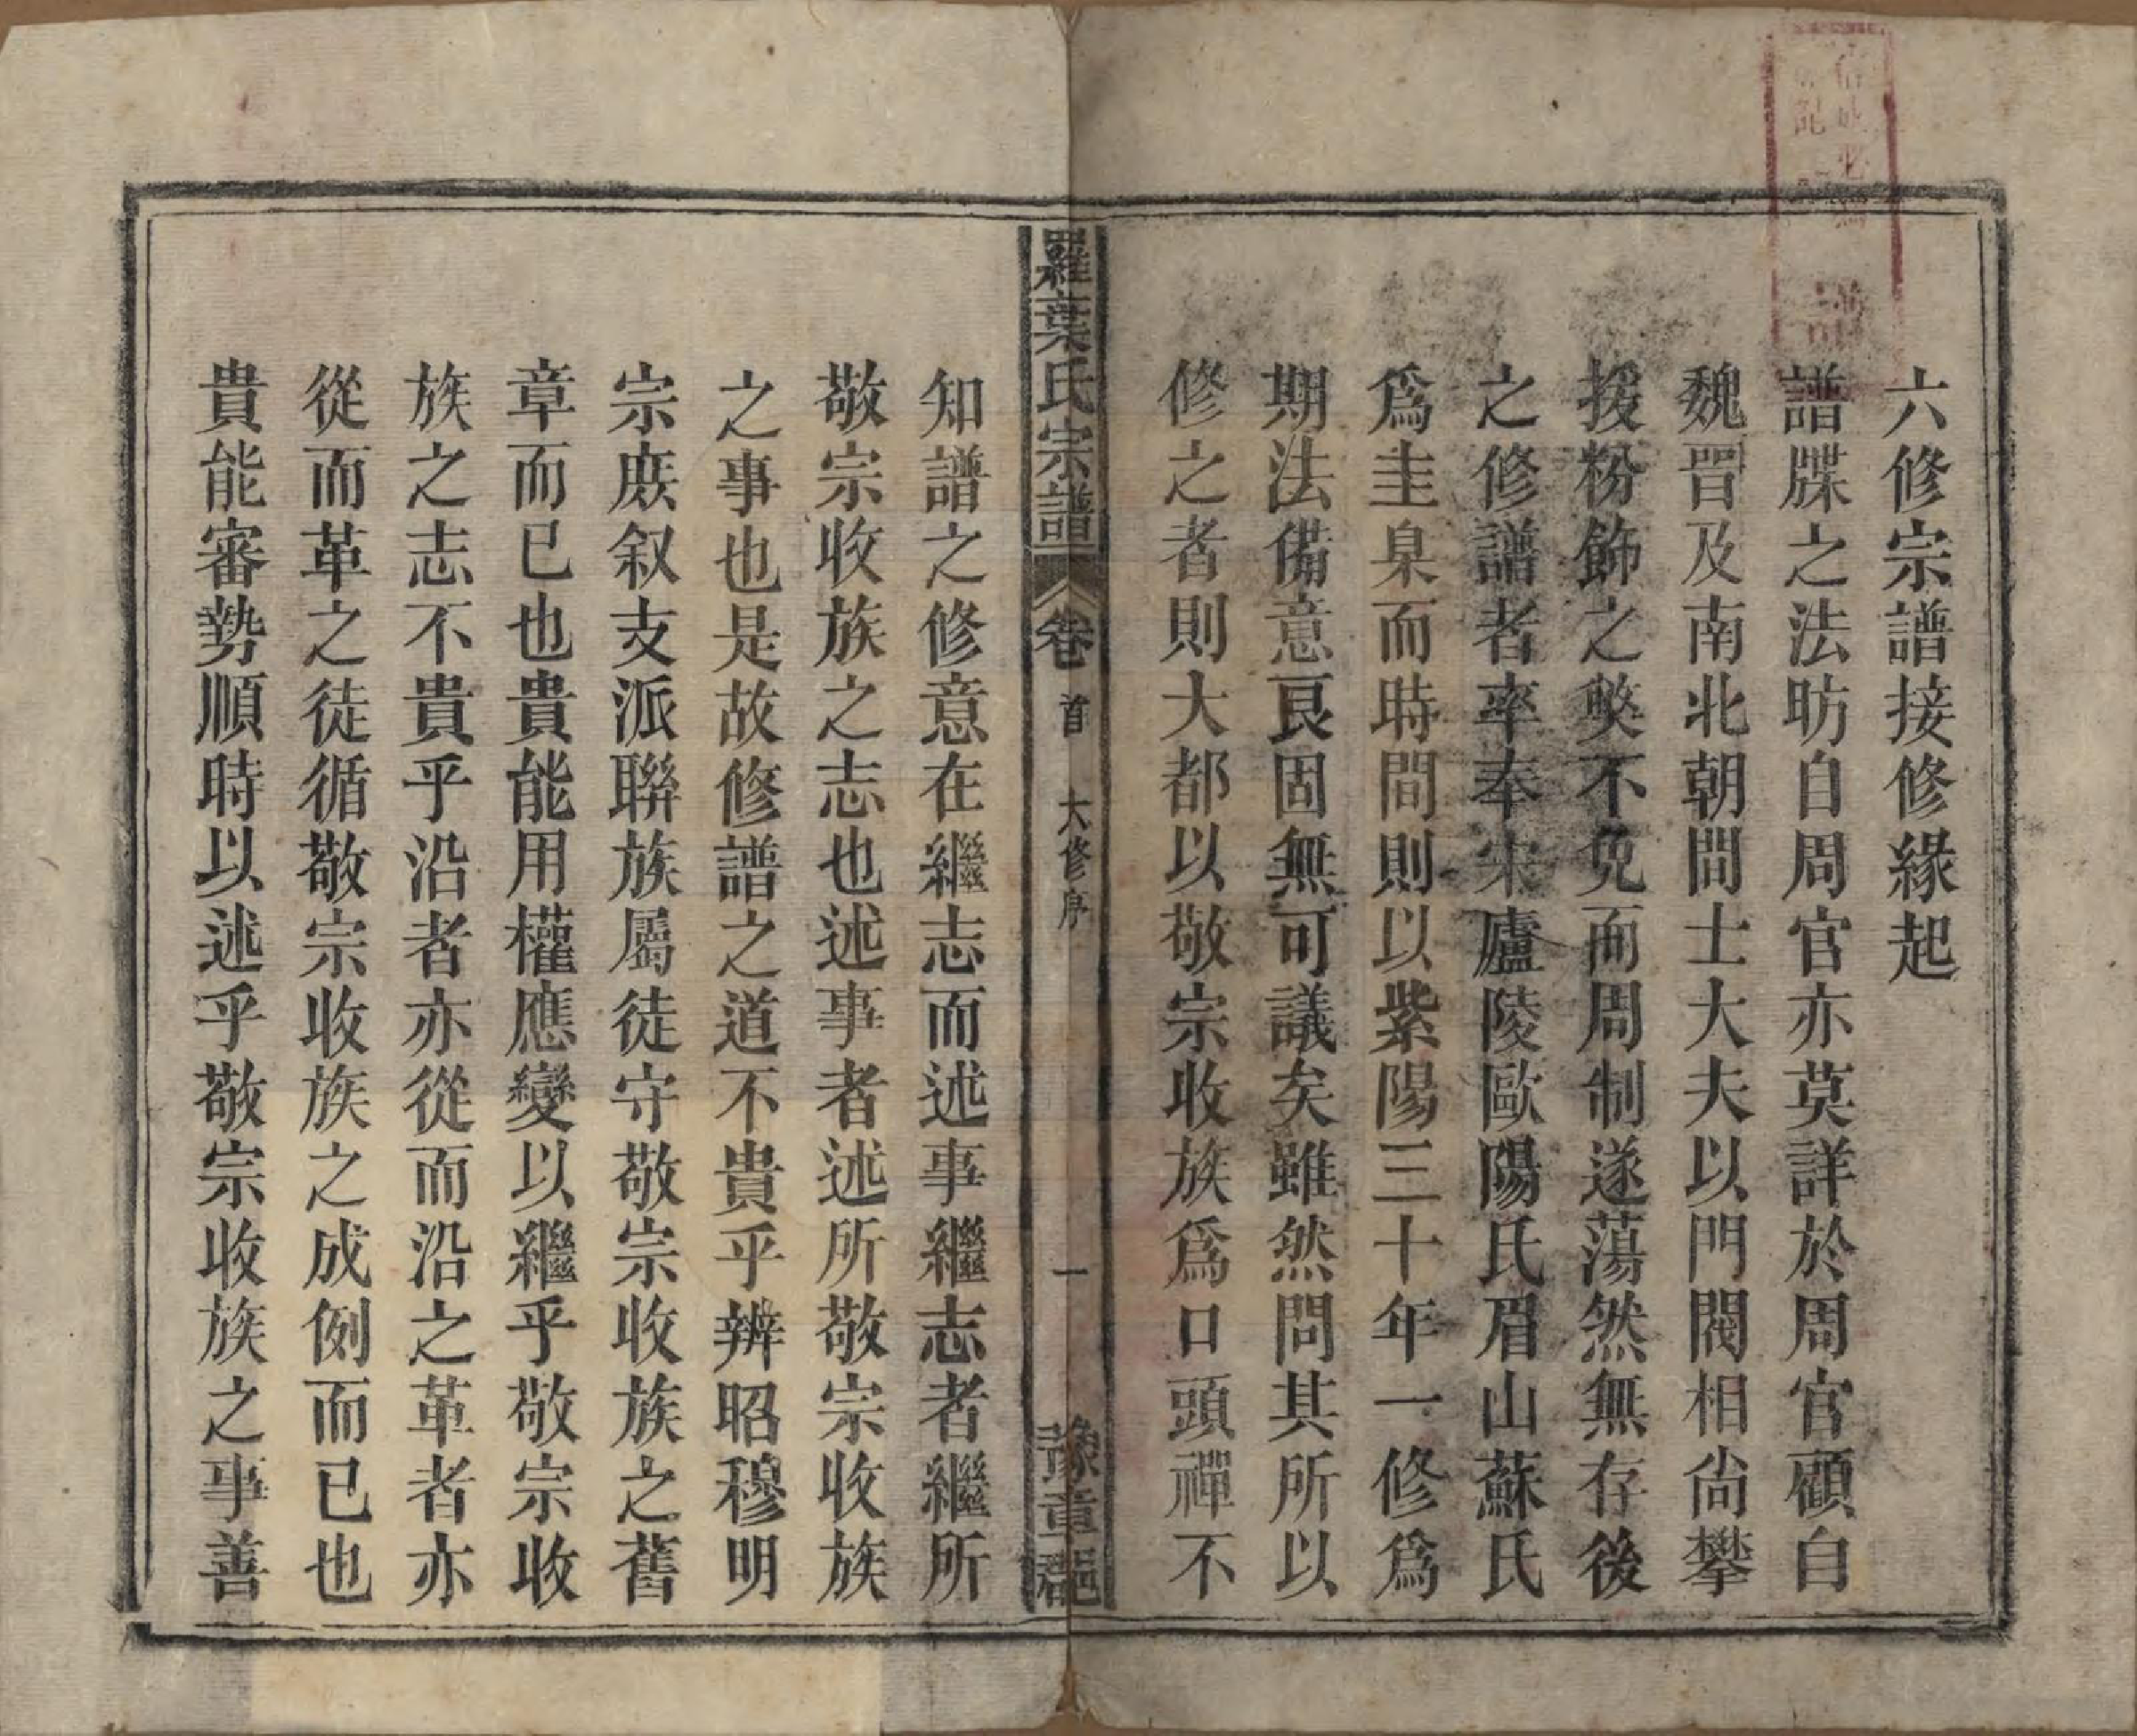 六修宗譜接修緣起
譜牒之法昉自周官亦莫詳於周官顧自
魏晉及南北朝間士大夫以門閥相尙攀
援粉飾之獘不免而周制遂蕩然無存後
之修譜者率奉宋廬陵歐陽氏眉山蘇氏
爲圭臬而時間則以紫陽三十年一修爲
期法備意良固無可議矣雖然問其所以
修之者則大都以敬宗收族爲口頭禪不
羅葉氏宗譜 卷首 六修序 一 豫章郡
知譜之修意在繼志而述事繼志者繼所
敬宗收族之志也述事者述所敬宗收族
之事也是故修譜之道不貴乎辨昭穆明
宗庶叙支派聯族屬徒守敬宗收族之舊
章而已也貴能用權應變以繼乎敬宗收
族之志不貴乎沿者亦從而沿之革者亦
從而革之徒循敬宗收族之成例而已也
貴能審勢順時以述乎敬宗收族之事善